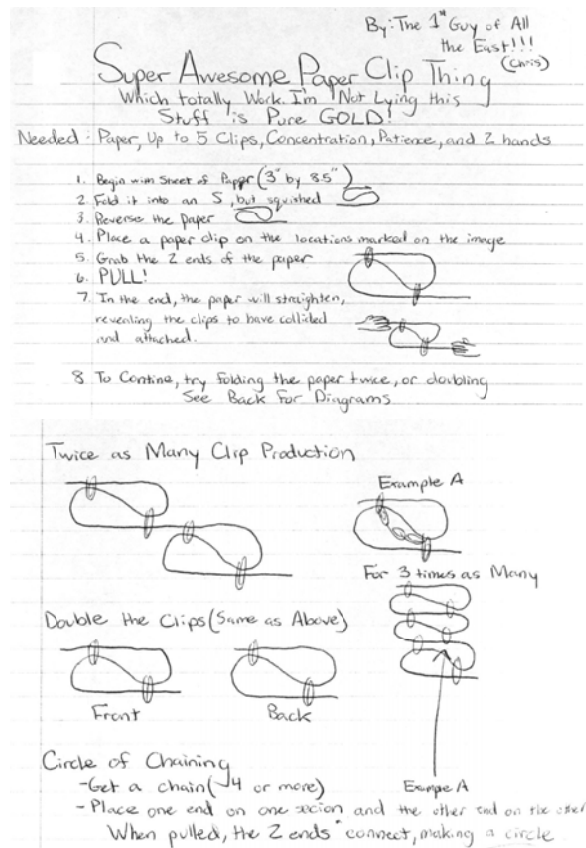 By: The 1st Guy of All
the East!!!
(Chris)
Super Awesome Paper Clip Thing
Which totally Work. I'm Not Lying this
Stuff is Pure GOLD!
Needed: Paper, Up to 5 Clips, Concentration, Patience, and 2 hands
1. Begin with Sheet of Paper (3" by 8.5")
2. Fold it into an S, but squished
3. Reverse the paper
4. Place a paper clip on the locations marked on the image
5. Grab the 2 ends of the paper
6. PULL!
7. In the end, the paper will straighten,
revealing the clips to have collided
and attached.
8. To Contine, try folding the paper twice, or doubling
See Back For Diagrams
Twice as Many Clip Production
Example A
For 3 times as Many
Double the Clips (Same as Above)
Front
Back
Circle of Chaining
-Get a chain (4 or more)
Exampe A
-Place one end on one secion and the other end on the other
When pulled, the 2 ends connect, making a circle